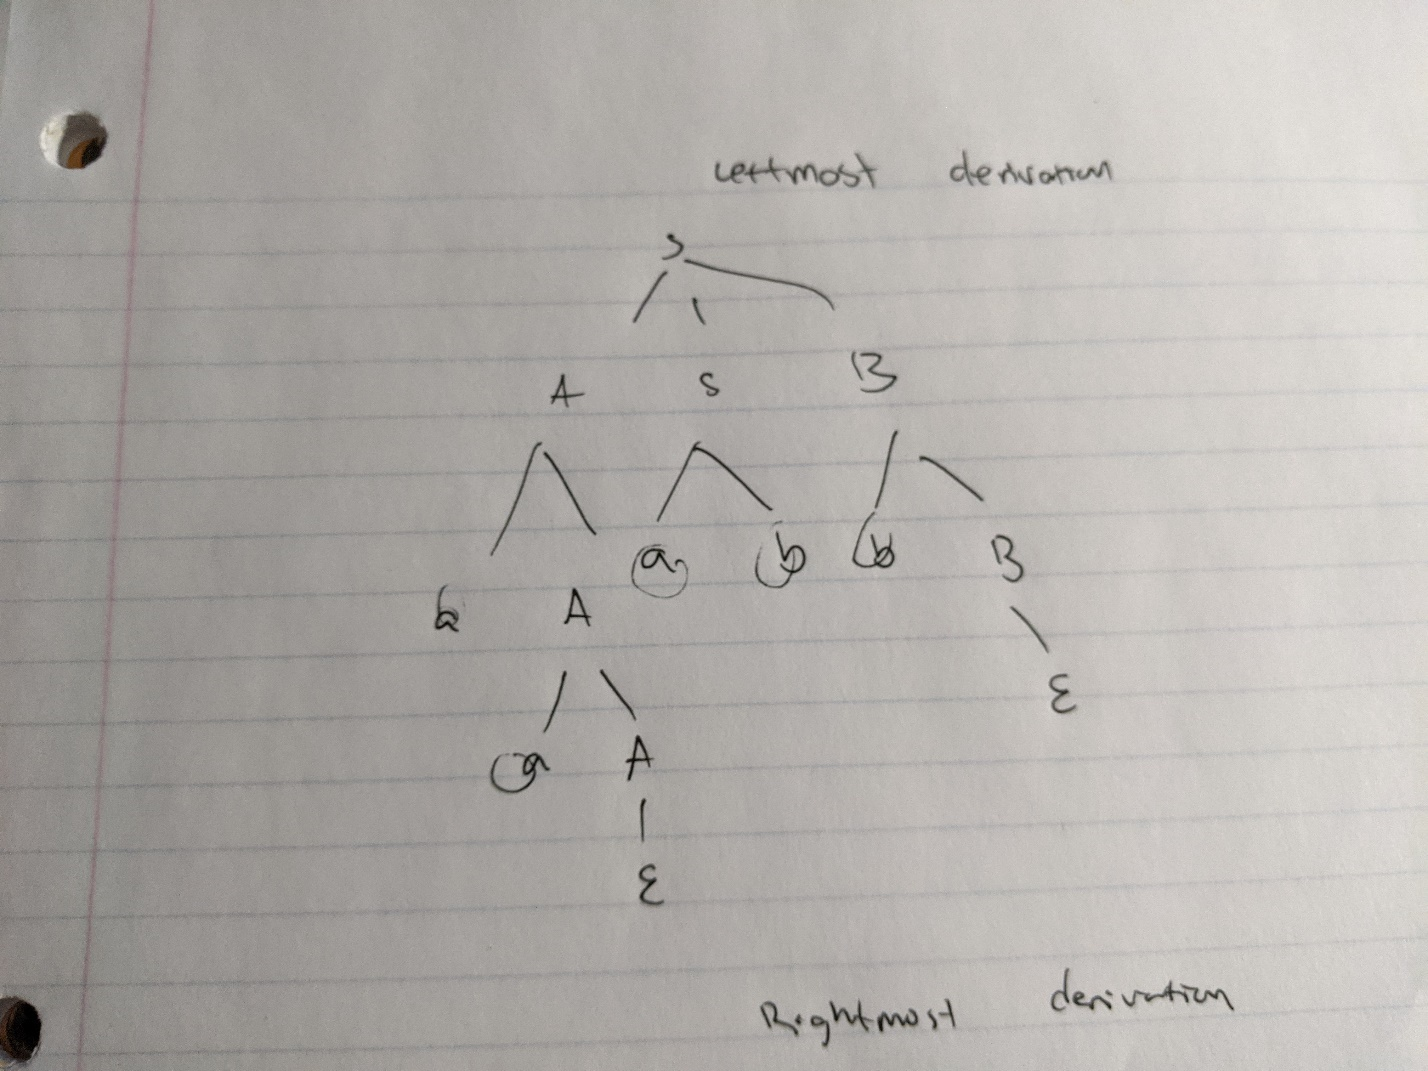 Leftmost derivation
S
A S B
A a b b B
a A ε
ε
Rightmost derivation